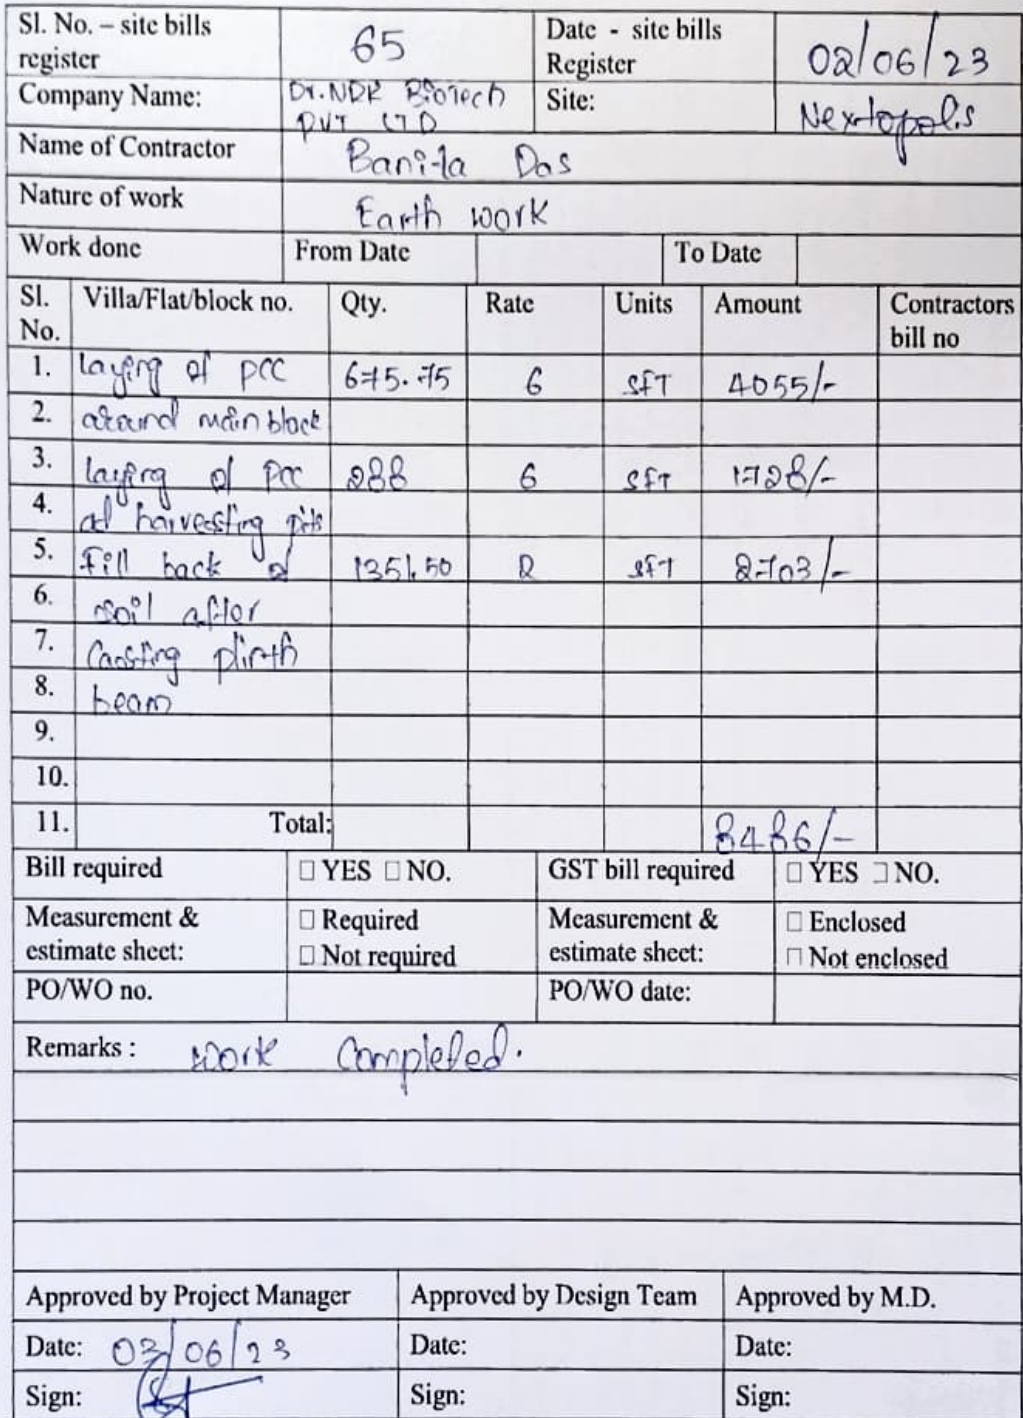 Sl. No. – site bills register 65 Date - site bills Register 02/06/23
Company Name: Dr. NDR Biotech PVT LTD Site: Nextopolis
Name of Contractor Banita Das
Nature of work Earth work
Work done From Date To Date
Sl. No. Villa/Flat/block no. Qty. Rate Units Amount Contractors bill no
1. laying of PCC 675.75 6 SFT 4055/-
2. around main block
3. laying of PCC 288 6 SFT 1728/-
4. at harvesting pits
5. Fill back of 1351.50 2 SFT 2703/-
6. soil after
7. Casting plinth
8. beam
9.
10.
11. Total: 8486/-
Bill required ☐ YES ☐ NO. GST bill required ☐ YES ☐ NO.
Measurement & estimate sheet: ☐ Required ☐ Not required Measurement & estimate sheet: ☐ Enclosed ☐ Not enclosed
PO/WO no. PO/WO date:
Remarks : Work Completed.
Approved by Project Manager Approved by Design Team Approved by M.D.
Date: 03/06/23 Date: Date:
Sign: Sign: Sign: